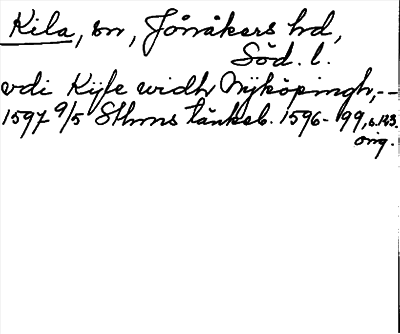 Kila, sn, Jönåkers hd,
Söd. l.
vdi Kijle widh Nyköpingh, --
1597 9/5 Sthms tänkeb. 1596-99, s. 123.
orig.